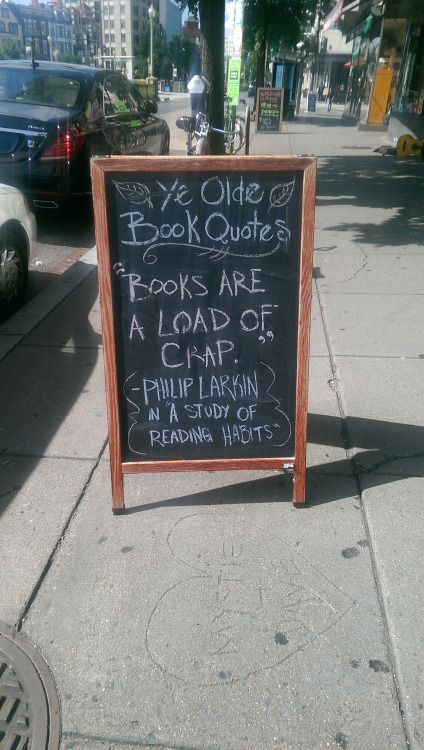 Ye Olde
Book Quotes
"BOOKS ARE
A LOAD OF
CRAP."
-PHILIP LARKIN
IN "A STUDY OF
READING HABITS"